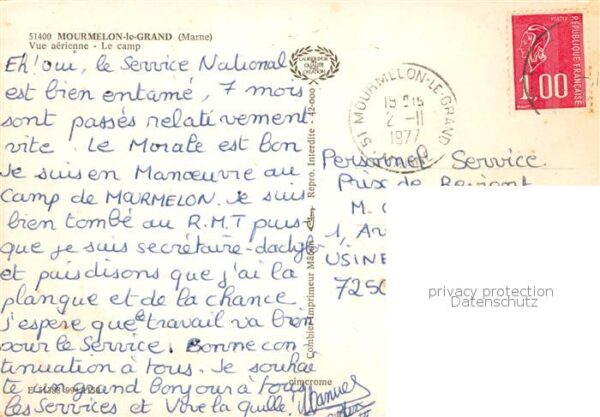 51400 MOURMELON-le-GRAND (Marne)
Vue aérienne - Le camp
Eh! oui, le Service National
est bien entamé, 7 mois
sont passés relativement
vite. Le Morale est bon
Je suis en Manœuvre au
Camp de MARMELON. Je suis
bien tombé au R.M.T puis-
que je suis secrétaire-dactylo
et puis disons que j'ai la
planque et de la chance
j'espère que le travail va bien
pour le Service. Bonne con
tinuation à tous. Je souhai
te un grand bonjour à tous
les Services et Vive la quille!
Manuel
Combier Imprimeur Mâcon
Repro. Interdite - 42-000
cimcrome
51 MOURMELON-LE-GRAND
2 -11
1977
POSTES
REPUBLIQUE FRANÇAISE
1,00
Personnel Service
Prix de
M.
1, Av
USINE
7250
privacy protection
Datenschutz